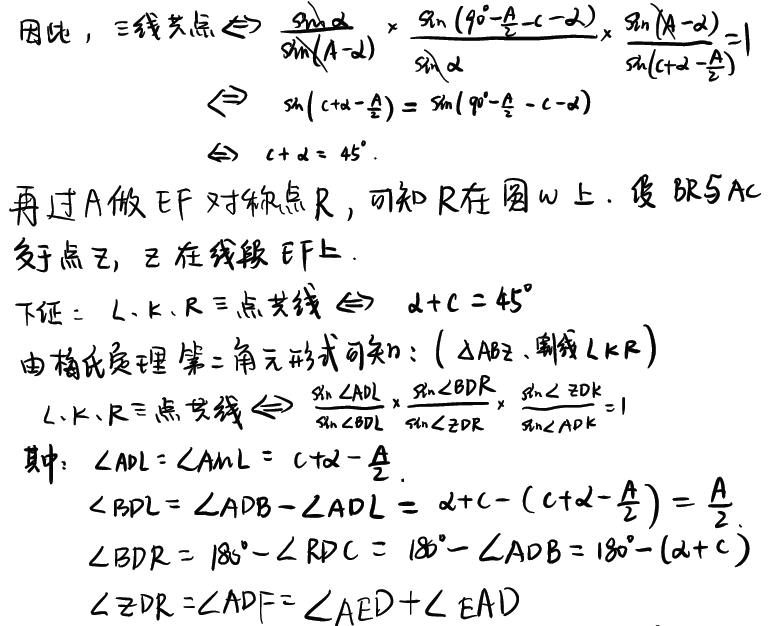 因此，三线共点 ⇔ sinα/sin(A-α) × sin(90°-A/2-C-α)/sinα × sin(A-α)/sin(C+α-A/2) =1
⇔ sin(C+α-A/2) = sin(90°-A/2-C-α)
⇔ C+α = 45°.
再过A做EF对称点R，可知R在圆ω上．设BR与AC
交于点Z，Z在线段EF上．
下证：L、K、R三点共线 ⇔ α+C = 45°
由梅氏定理第二角元形式可知：(△ABZ、割线LKR)
L、K、R三点共线 ⇔ sin∠ADL/sin∠BDL × sin∠BDR/sin∠ZDR × sin∠ZDK/sin∠ADK =1
其中：∠ADL=∠AML = C+α-A/2.
∠BDL=∠ADB-∠ADL = α+C-(C+α-A/2) = A/2.
∠BDR = 180°-∠RDC = 180°-∠ADB = 180°-(α+C)
∠ZDR =∠ADF=∠AED+∠EAD